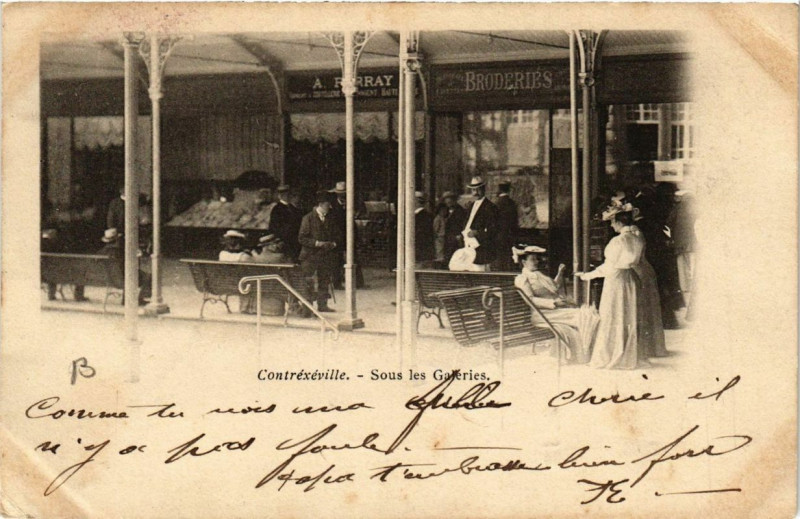 A. R RRAY
BRODERIES
Contréxéville. - Sous les Galeries.
B
Comme tu vois ma chérie il
n'y a pas foule.
papa t'embrasse bien fort